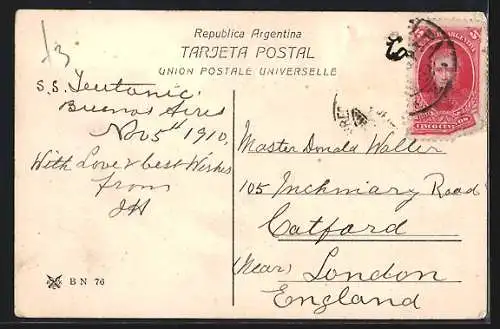 Republica Argentina
TARJETA POSTAL
UNION POSTALE UNIVERSELLE
13.
S.S. Teutonic
Buenos Aires
Nov 5th 1910.
With Love & best Wishes
from
Master Donald Waller
105 Inchmiary Road
Catford
(Near) London
England
BN 76